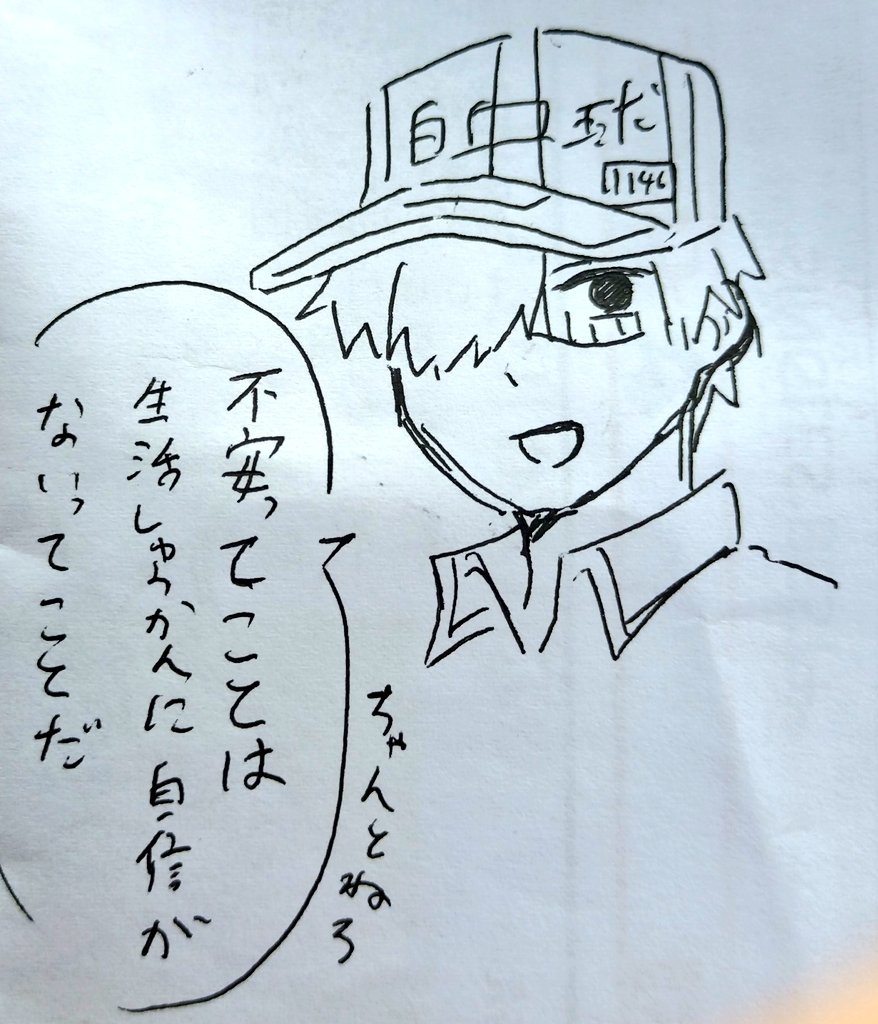 1146
不安ってことは
生活しゅうかんに自信が
ないってことだ
ちゃんとねろ